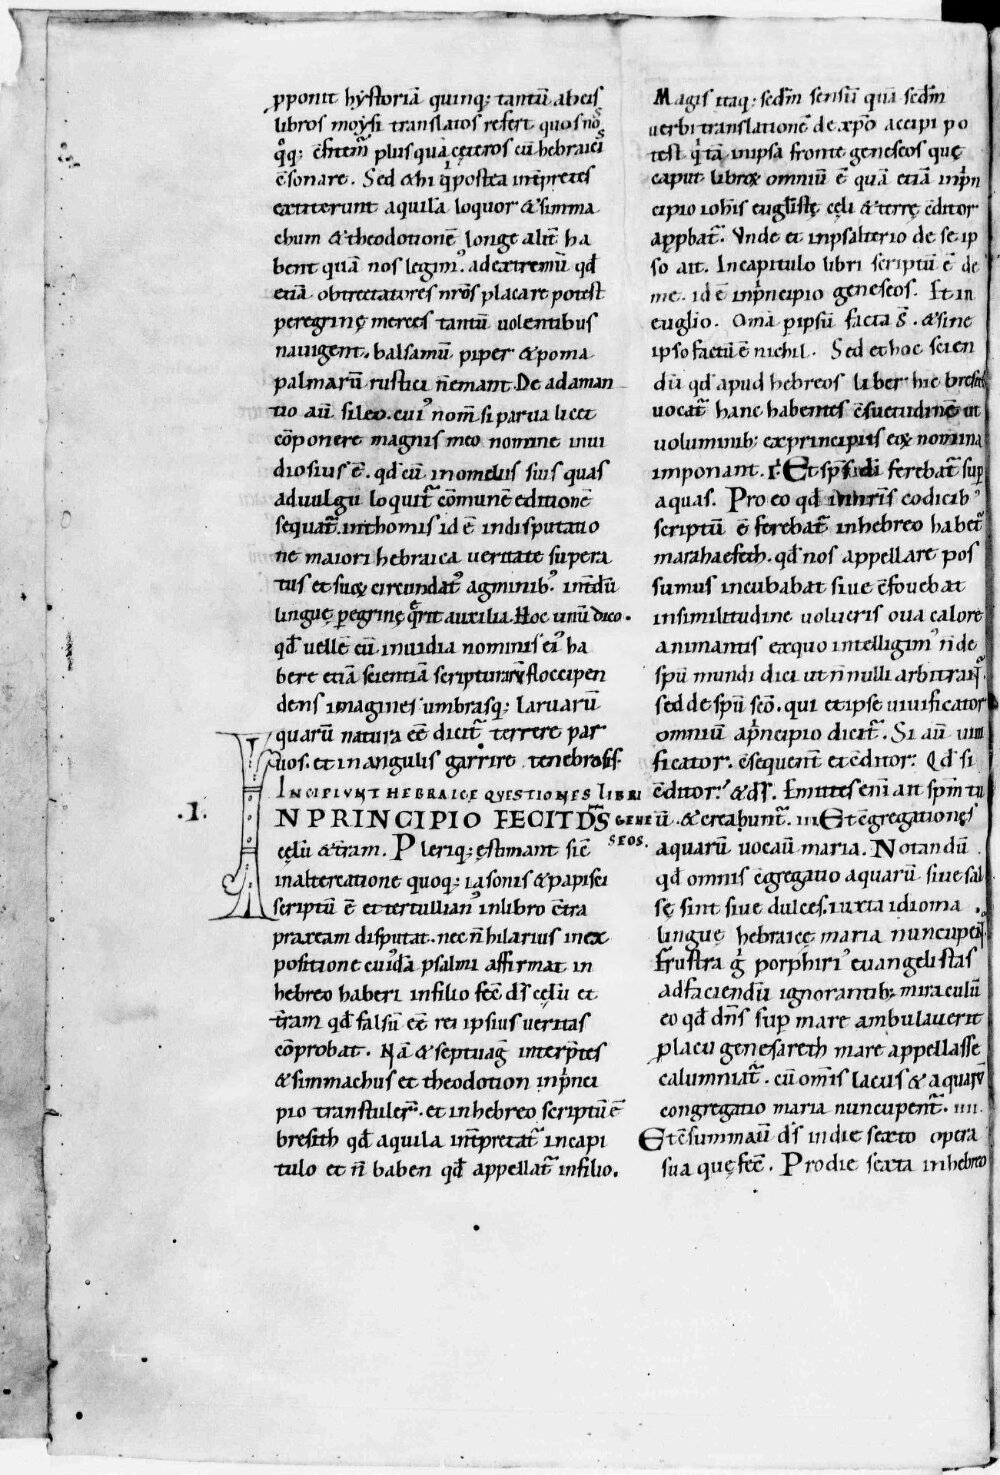 pponit hẏstoriā quinq; tantū abeis
libros moẏsi translatos refert quos nos
q̊q; ꝯfitem̄ plusquā cęteros cū hebraicis
ꝯsonare. Sed &hi qͥ postea int̄pretes
extiterunt aquilā loquor &simma
chum &theodotionē longe alit̄ ha
bent quā nos legim᾿. adextremū qđ
etiā obtrectatores nr̄os placare potest
peregrinę merces tantū uolentibus
nauigent. balsamū piper &poma
palmarū rustici n̄emant. De adaman
tio aū sileo. cui᾿ nom̄ si parua licet
cōponere magnis meo nomine inui
diosius ē. qđ cū inomeliis suis quas
aduulgū loquit̄ cōmunē editionē
sequat̄. inthomis id ē indisputatio
ne maiori hebraica ueritate supera
tus et suoꝝ circundat᾿ agminib᾿. int̄dū
linguę peregrinę q̄rit auxilia. Hoc unū dico.
qđ uellē cū inuidia nominis ei᾿ ha
bere etiā scientiā scripturarū floccipen
dens imagines umbrasq; laruarū
quarū natura eē dicit̄ terrere par
uos. et inangulis garrire tenebrosis.
INCIPIUNT HEBRAICE QUESTIONES LIBRI
GENESEOS.
.I.
IN PRINCIPIO FECIT DS̄
cęlū &t̄ram. Pleriq; ęstimant sic̄
inaltercatione quoq; iasonis &papisci
scriptū ē et tertullian᾿ inlibro ꝯtra
praxeam disputat. nec n̄ hilarius inex
positione cuiᵈā psalmi affirmat in
hebreo haberi infilio fec̄ ds̄ cęlū et
t̄ram qđ falsū eē rei ipsius ueritas
cōprobat. Nā &septuaḡ interp̄tes
&simmachus et theodotion inpͥnci
pio transtuler̄. et inhebreo scriptū ē
bresith qđ aquila int̄pretat̄ incapi
tulo et n̄ baben qđ appellat̄ infilio.
Magis itaq; sedm̄ sensū quā sedm̄
uerbi translationē de xp̄o accipi po
test qͥ tā inipsa fronte geneseos quę
caput libroꝝ omniū ē quā etiā inpͥn
cipio ioh̄is eug̅listę cęli &terrę ꝯditor
app̱bat̄. Vnde et inpsalterio de se ip
so ait. Incapitulo libri scriptū ē de
me. id ē inpͥncipio geneseos. Et in
euglio. Om̄a p̱ ipsū facta s̄. &sine
ipso factū ē nichil. Sed et hoc scien
dū qđ apud hebreos liber hic bresith
uocat̄ hanc habentes ꝯsuetudinē ut
uoluminib; exprincipiis eoꝝ nomina
imponant. Et sp̄s dī ferebat̄ sup̱
aquas. Pro eo qđ innr̄is codicib᾿
scriptū ē ferebat̄ inhebreo habet̄
marahaefeth. qđ nos appellare pos
sumus incubabat siue ꝯfouebat
insimilitudine uolucris oua calore
animantis exquo intelligim᾿ n̄ de
spū mundi dici ut n̄nulli arbitrant̄
sed de spū sc̄o. qui et ipse uiuificator
omniū apͥncipio dicit̄. Si aū uiui
ficator. ꝯsequent̄ et ꝯditor. Qđ si
ꝯditor. &ds̄. Emittes eni ait spm̄ tu
ū. &creabunt̄. iii Et ꝯgregationes
aquarū uocauī maria. Notandū.
qđ omnis ꝯgregatio aquarū siue sal
sę sint siue dulces. iuxta idioma
linguę hebraicę maria nuncupent̄.
Frustra gͥ porphiri᾿ euangelistas
adfaciendū ignorantib; miraculū
eo qđ dn̄s sup̱ mare ambulauerit
p̱lacu genesareth mare appellasse
calumniat̄. cū om̄is lacus &aquarū
congregatio maria nuncupent̄. iiii.
Et ꝯsummauī ds̄ in die sexto opera
sua quę fec̄. Pro die sexta inhebreo